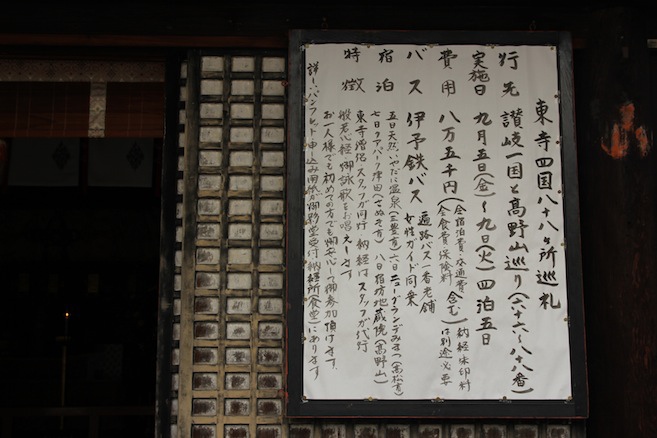 東寺四国八十八ヶ所巡礼
行先 讃岐一国と高野山巡り(六十六〜八十八番)
実施日 九月五日(金)〜九日(火)四泊五日
費用 八万五千円(全宿泊費・交通費 全食費・保険料 含む)納経朱印料は別途必要
バス 伊予鉄バス 遍路バス一番老舗 女性ガイド同乗
宿泊 五日天然いやだに温泉(三豊市)六日ニューグランデみまつ(高松市)
七日クアパーク津田(さぬき市)八日宿坊地蔵院(高野山)
特徴 東寺僧侶・スタッフが同行 納経はスタッフが代行
般若心経・御詠歌をお唱えします
お一人様でも初めての方でも安心して御参加頂けます。
詳しいパンフレット・申し込み用紙が御影堂受付納経所(食堂)にあります